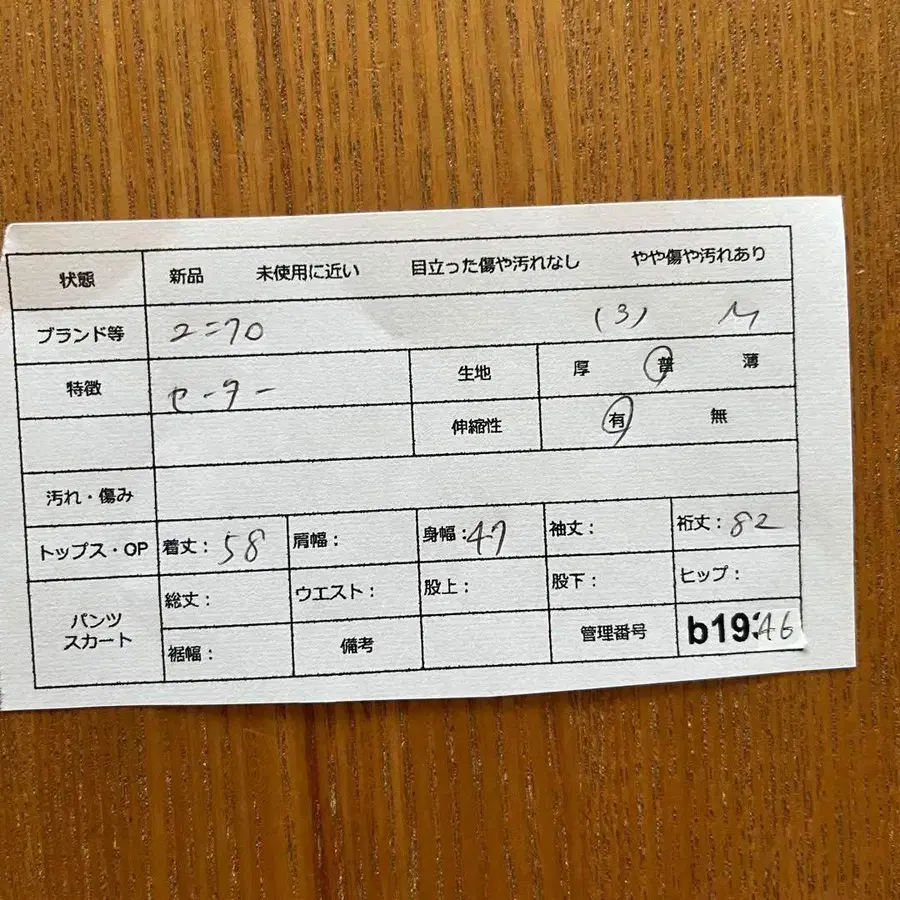 状態 新品 未使用に近い 目立った傷や汚れなし やや傷や汚れあり
ブランド等 ユニクロ (3) M
特徴 セーター 生地 厚 普 薄
伸縮性 有 無
汚れ・傷み
トップス・OP 着丈：58 肩幅： 身幅：47 袖丈： 裄丈：82
パンツ スカート 総丈： ウエスト： 股上： 股下： ヒップ：
裾幅： 備考 管理番号 b19346